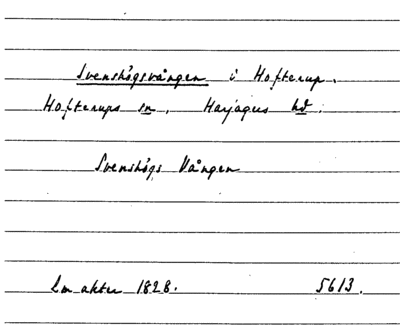 Svenshögsvången i Hofterup.
Hofterups sn. Harjagers hd.
Svenshögs Vången
Lm akter 1828. 5613.